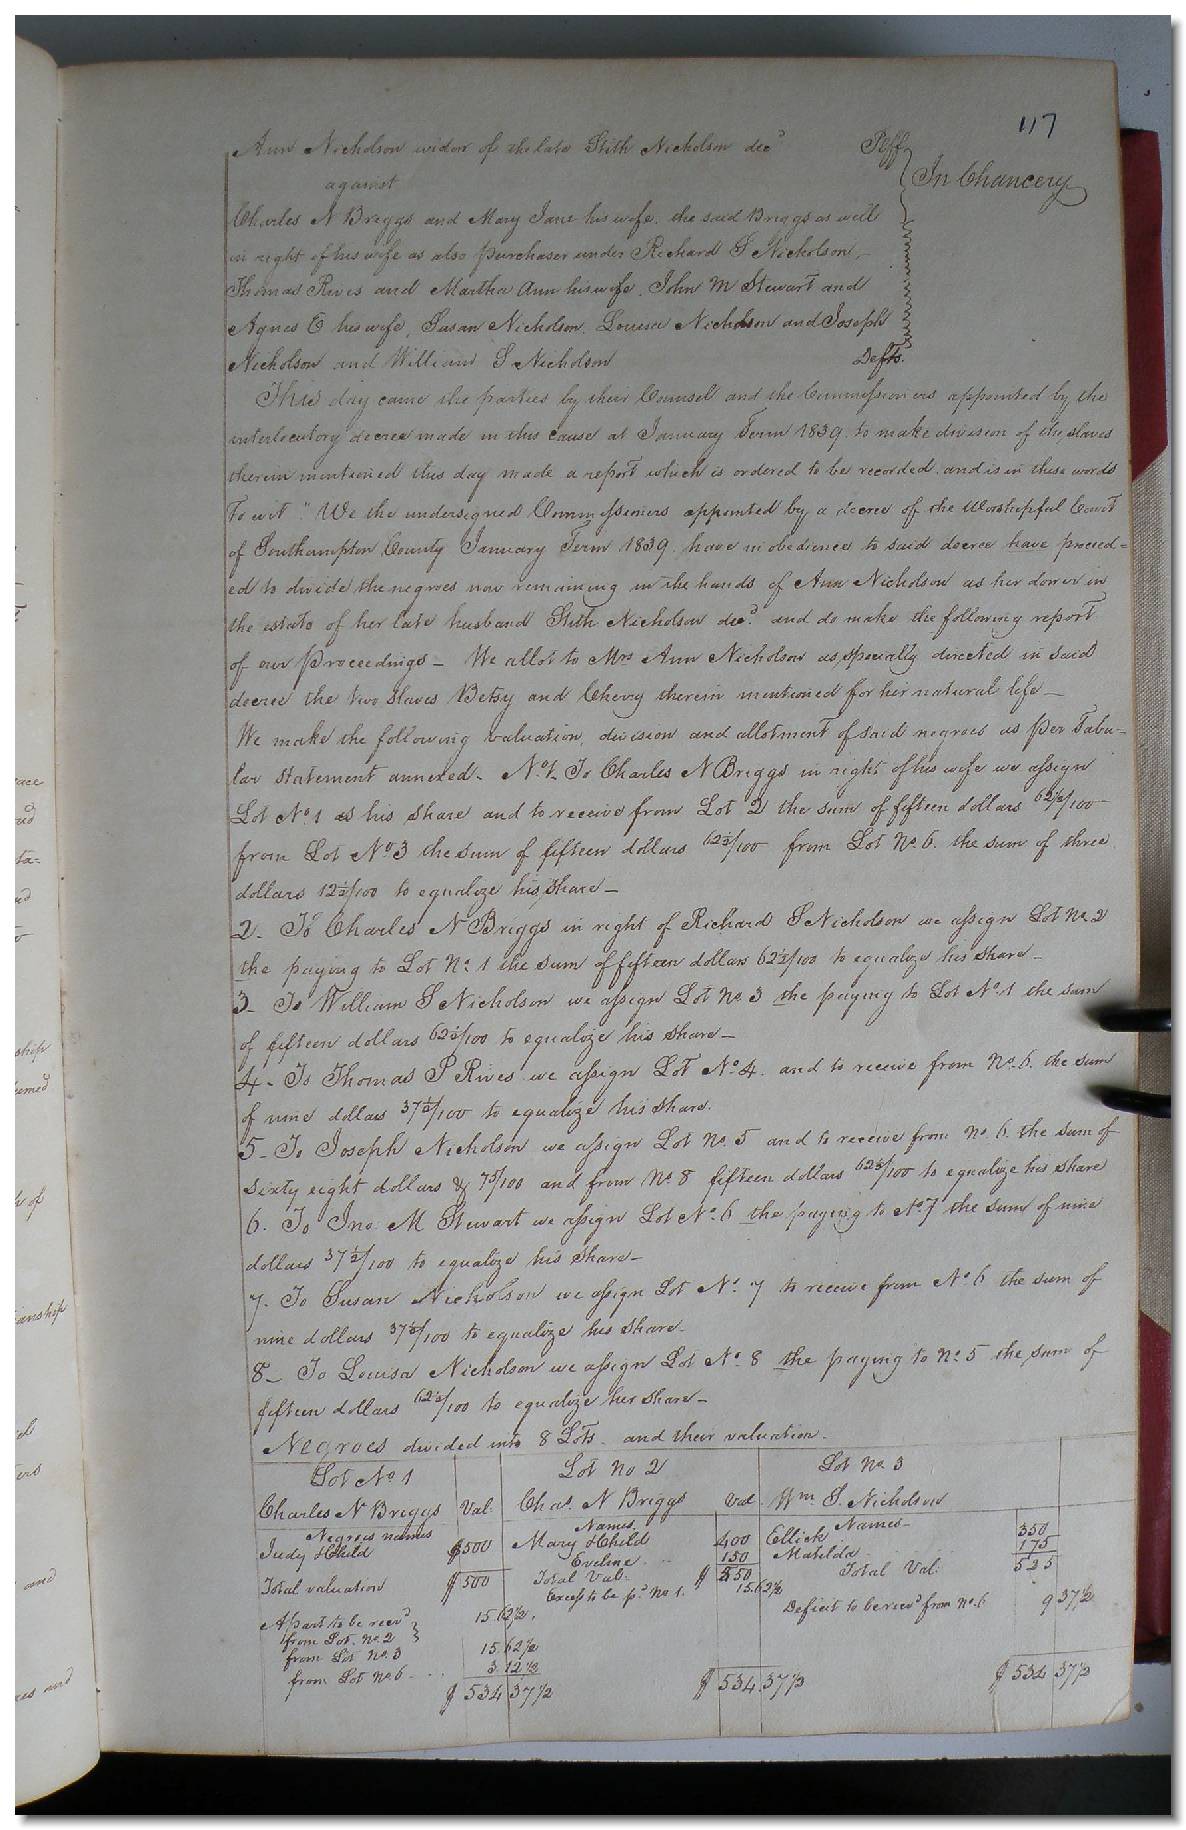 117
Ann Nicholson widow of the late Stith Nicholson decd Plff
against
In Chancery
Charles N Briggs and Mary Jane his wife, the said Briggs as well
in right of his wife as also purchaser under Richard S Nicholson,
Thomas Rives and Martha Ann his wife, John M Stewart and
Agnes E his wife, Susan Nicholson, Louisa Nicholson and Joseph
Nicholson and William S Nicholson Defts.
This day came the parties by their Counsel and the Commissioners appointed by the
interlocutory decree made in this cause at January Term 1839. to make division of the slaves
therein mentioned this day made a report which is ordered to be recorded. and is in these words
To wit " We the undersigned Commissioners appointed by a decree of the Worshipful Court
of Southampton County January Term 1839. have in obedience to said decree have proceed=
ed to divide the negroes now remaining in the hands of Ann Nicholson as her dower in
the estate of her late husband Stith Nicholson decd. and do make the following report
of our proceedings - We allot to Mrs Ann Nicholson as specially directed in said
decree the two slaves Betsy and Cherry therein mentioned for her natural life -
We make the following valuation, division and allotment of said negroes as per Tabu-
lar statement annexed - No. 1. To Charles N Briggs in right of his wife we assign
Lot No 1 as his share and to receive from Lot 2 the sum of fifteen dollars 62½/100
from Lot No 3 the sum of fifteen dollars 62½/100 from Lot No. 6. the sum of three
dollars 12½/100 to equalize his share -
2. To Charles N Briggs in right of Richard S Nicholson we assign Lot No. 2
the paying to Lot No. 1 the sum of fifteen dollars 62½/100 to equalize his share -
3- To William S Nicholson we assign Lot No. 3 the paying to Lot No. 1 the sum
of fifteen dollars 62½/100 to equalize his share -
4 - To Thomas P Rives we assign Lot No. 4. and to receive from No. 6. the sum
of nine dollars 37½/100 to equalize his share.
5- To Joseph Nicholson we assign Lot No. 5 and to receive from No. 6. the sum of
sixty eight dollars & 75/100 and from No. 8 fifteen dollars 62½/100 to equalize his share
6. To Jno. M Stewart we assign Lot No. 6 the paying to No. 7 the sum of nine
dollars 37½/100 to equalize his share -
7. To Susan Nicholson we assign Lot No. 7 to receive from No 6 the sum of
nine dollars 37½/100 to equalize his share -
8- To Louisa Nicholson we assign Lot No. 8 the paying to No. 5 the sum of
fifteen dollars 62½/100 to equalize her share -
Negroes divided into 8 Lots - and their valuation -
Lot No 1 Lot No 2 Lot No. 3
Charles N Briggs Val. Chas. N Briggs Val. Wm S. Nicholson
Negroes names Names. Names -
Judy & Child $500 Mary & Child 400 Ellick 350
Eveline 150 Matilda 175
Total valuation $500 Total Val: $550 Total Val: 525
Excess to be pd No 1. 15.62½
Apart to be recd
from Lot. No. 2 15.62½ Deficit to be recd from No. 6 9 37½
from Lot No. 3 15 62½
from Lot No 6 3. 12½
$534 37½ $534.37½ $534 37½